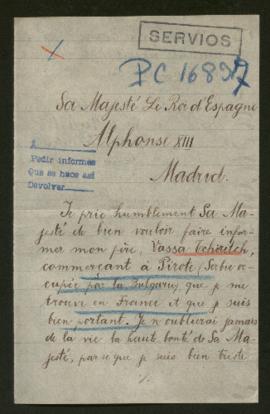 SERVIOS
PC 16897
Sa Majesté Le Roi d'Espagne
Alphonse XIII
Madrid.
A
Pedir informes
Que se hace así
Devolver
Je prie humblement Sa Ma-
jesté de bien vouloir faire infor-
mer mon père, Vassa Tchiritch,
commerçant à Pirote, Serbie oc-
cupée par la Bulgarie, que je me
trouve en France et que je suis
bien portant. Je n'oublierai jamais
de la vie la haute bonté de Sa Ma-
jesté, parce que je suis bien triste